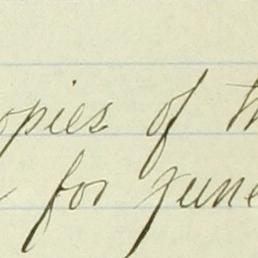 opies of th
for June